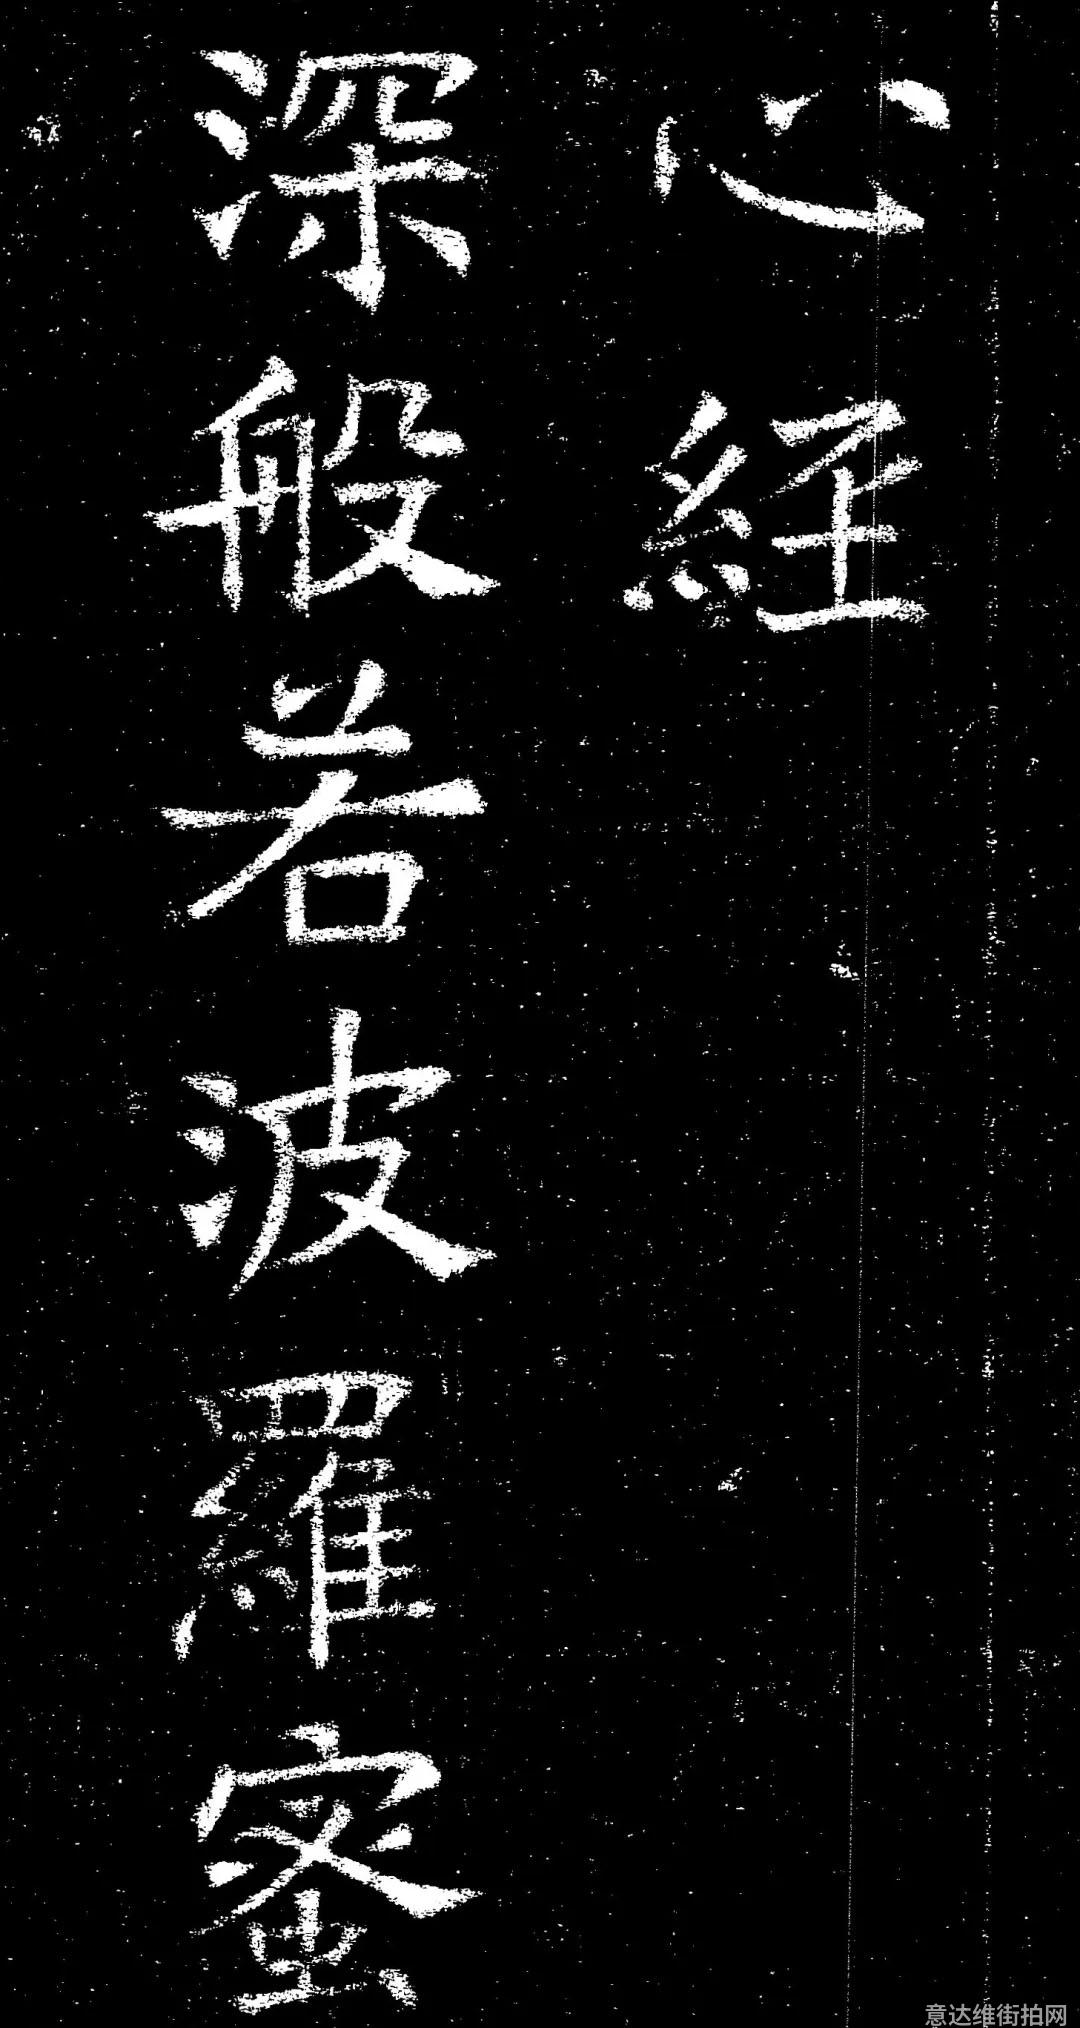 心經
深般若波羅蜜
意达维街拍网